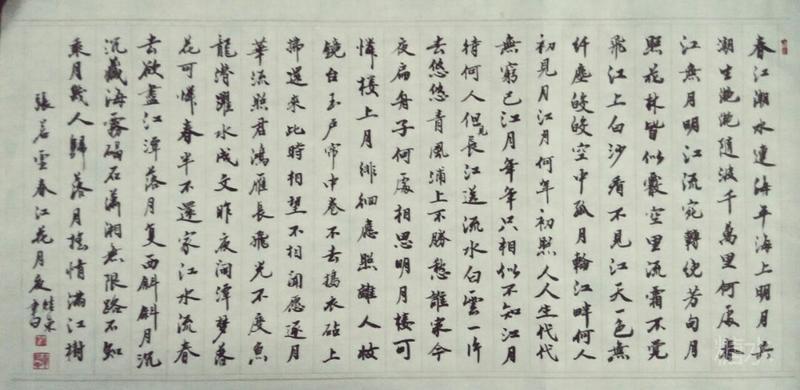 春江潮水連海平海上明月共
潮生滟滟隨波千萬里何處春
江無月明江流宛轉繞芳甸月
照花林皆似霰空里流霜不覺
飛汀上白沙看不見江天一色無
纤塵皎皎空中孤月輪江畔何人
初見月江月何年初照人人生代代
無窮已江月年年只相似不知江月
待何人但見長江送流水白雲一片
去悠悠青風浦上不勝愁誰家今
夜扁舟子何處相思明月樓可
憐樓上月徘徊應照離人妝
鏡台玉戶帘中卷不去搗衣砧上
拂還來此時相望不相聞愿逐月
華流照君鴻雁長飛光不度魚
龍潛躍水成文昨夜闲潭夢落
花可憐春半不還家江水流春
去欲盡江潭落月复西斜斜月沉
沉藏海霧碣石瀟湘無限路不知
乘月幾人歸落月搖情滿江樹
張若虛春江花月夜